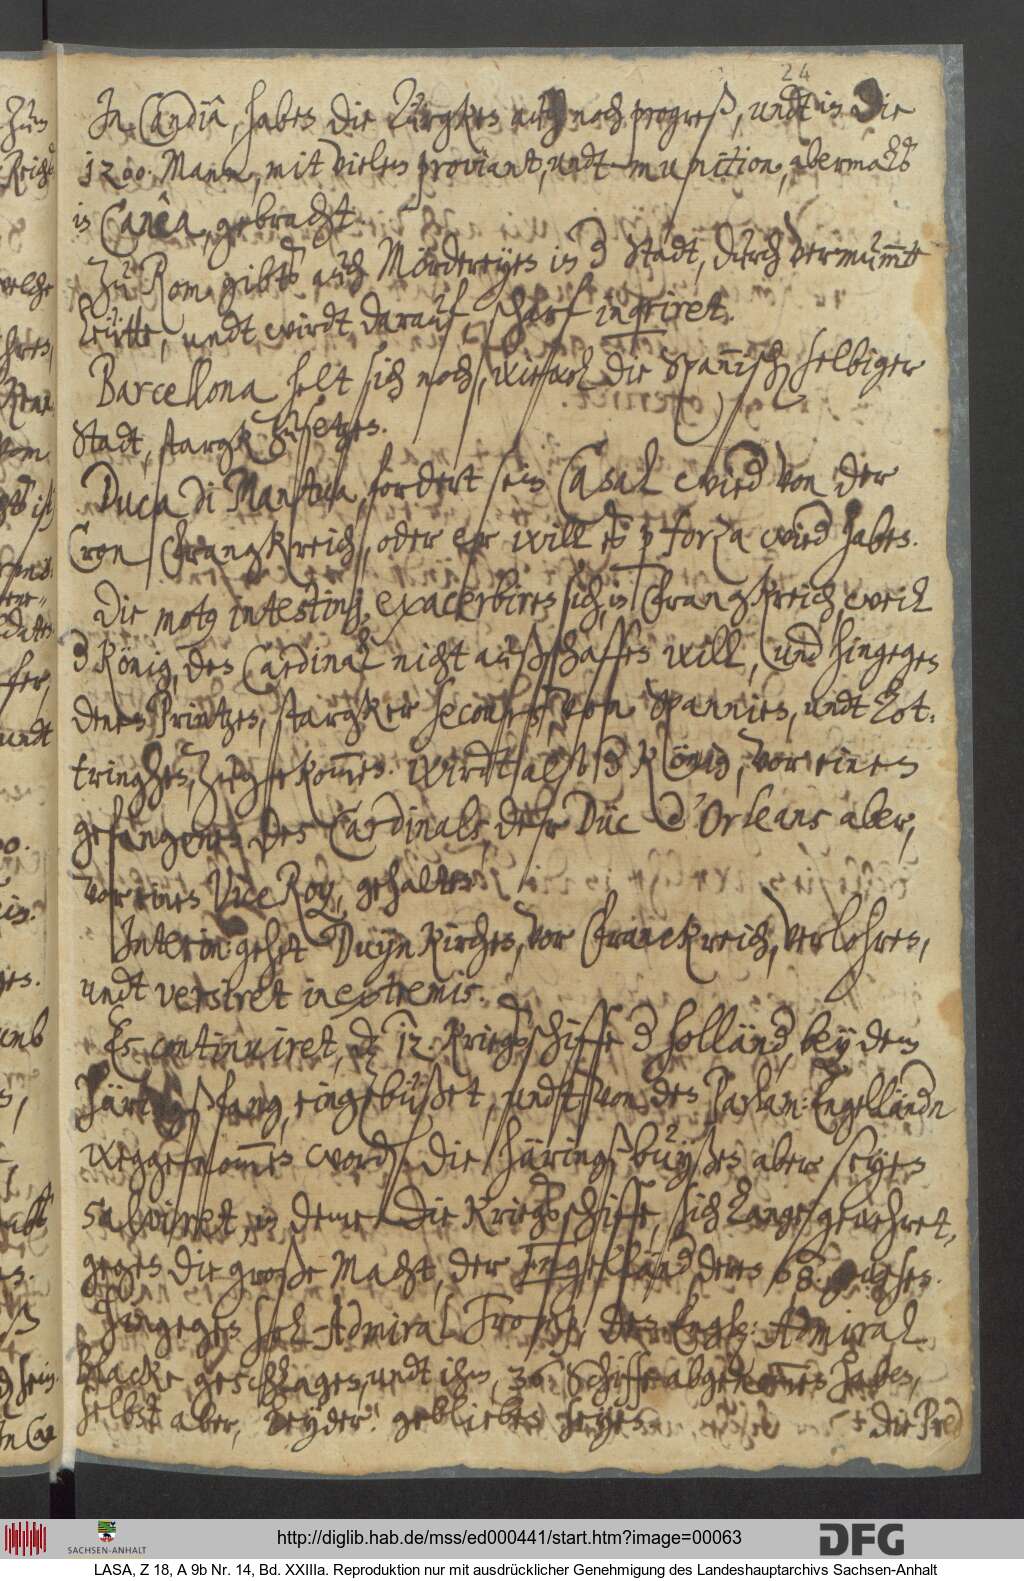 24
In Candia, haben die Türgken auch noch progreß, undt in die
1200 Mann, mit vielem proviant, undt munition, abermalß
in Canëa, gebracht.
Zu Rom gibtß auch Mördereyen in der Stadt, durch vermum̄te
leütte, undt wirdt darauf, scharf inquiret.
Barcellona helt sich noch, wiewol die Spannischen selbiger
Stadt, stargk zusetzen.
Duca di Mantua, fordert sein Casal wied von der
Cron Frangkreich, oder er will eß p forza wied haben.
Die motus intestini, exacerbiren sich, in Frangkreich, weil
d König, den Cardinal nicht außschaffen will, und hingegen
denen Printzen, stargker secourß, von Spannien, undt Lot-
tringhen, zugekom̄en. Wirdt also d König, vor einen
gefangenen des Cardinals, der Duc d'Orleans aber,
vor einen Vice Roy, gehalten.
Interim gehet Duynkirchen, vor Franckreich, verlohren,
undt versiret in extremis.
Es continuiret, dz 12 Kriegßschiffe d Holländ, bey dem
Häringßfang, eingebüßet, undt von den Parlam: Engelländn
weggenom̄en worden. Die Häringßbuyßen aber seyen
salviret, in deme die Kriegßschiffe, sich lange gewehret,
gegen die große Macht, der Engelländ deren 68 gewesen.
Hingegen sol Admiral Tromp den Engl: Admiral
Blacke geschlagen, undt ihm, 36 Schiffe abgenom̄en haben,
selbst aber, beyder: geblieben seyen.
die Pred
http://diglib.hab.de/mss/ed000441/start.htm?image=00063
SACHSEN-ANHALT
DFG
LASA, Z 18, A 9b Nr. 14, Bd. XXIIIa. Reproduktion nur mit ausdrücklicher Genehmigung des Landeshauptarchivs Sachsen-Anhalt